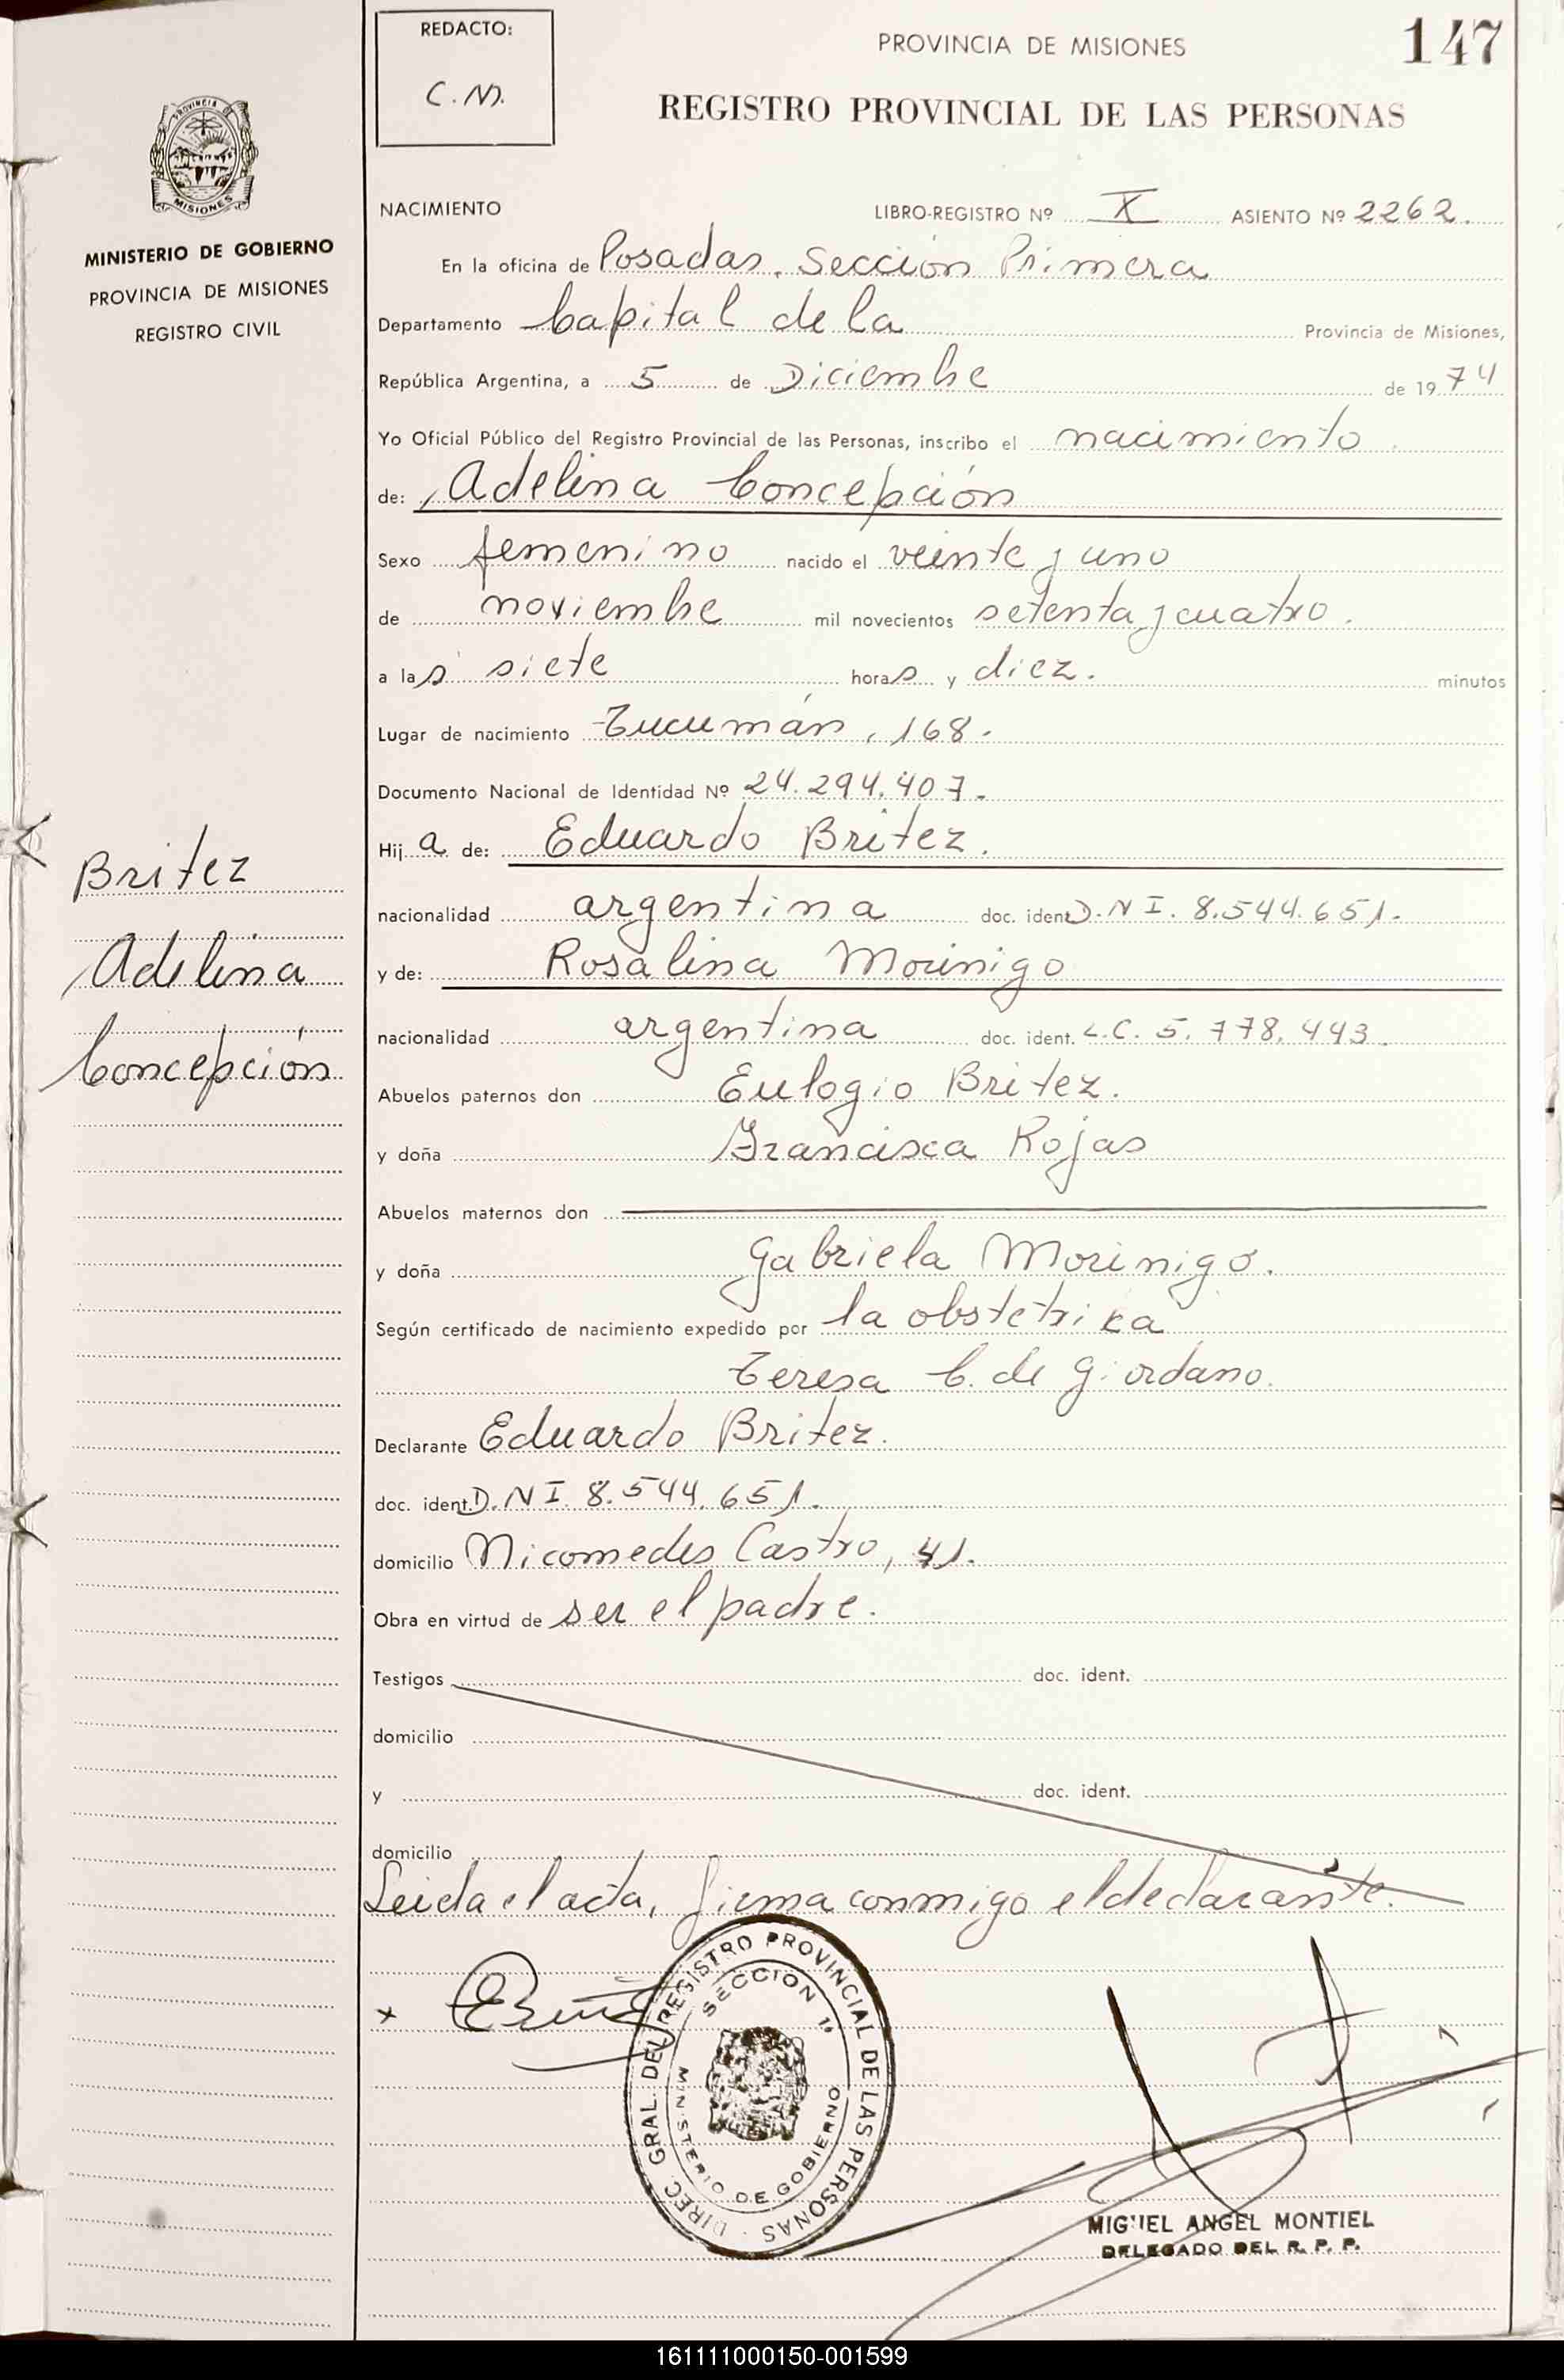 REDACTO:
C.M.
PROVINCIA DE MISIONES
147
REGISTRO PROVINCIAL DE LAS PERSONAS
PROVINCIA DE
MISIONES
MINISTERIO DE GOBIERNO
PROVINCIA DE MISIONES
REGISTRO CIVIL
NACIMIENTO LIBRO-REGISTRO Nº X ASIENTO Nº 2262.
En la oficina de Posadas, Sección Primera
Departamento Capital de la Provincia de Misiones,
República Argentina, a 5 de Diciembre de 1974
Yo Oficial Público del Registro Provincial de las Personas, inscribo el nacimiento
de: Adelina Concepción
Sexo femenino nacido el veinte y uno
de noviembre mil novecientos setenta y cuatro.
a las siete horas y diez. minutos
Lugar de nacimiento Tucumán, 168.
Documento Nacional de Identidad Nº 24.294.407.
Hija de: Eduardo Britez.
nacionalidad argentina doc. ident. D.N I. 8.544.651.
y de: Rosalina Morinigo
nacionalidad argentina doc. ident. L.C. 5.778.443.
Abuelos paternos don Eulogio Britez.
y doña Francisca Rojas
Abuelos maternos don
y doña Gabriela Morinigo.
Según certificado de nacimiento expedido por la obstetrika
Teresa C. de Giordano.
Declarante Eduardo Britez.
doc. ident. D.N I. 8.544.651.
domicilio Nicomedes Castro, 41.
Obra en virtud de ser el padre.
Testigos doc. ident.
domicilio
y doc. ident.
domicilio
Leida el acta, firma conmigo el declarante.
Britez
Adelina
Concepción
DIREC. GRAL. DEL REGISTRO PROVINCIAL DE LAS PERSONAS
SECCION 1ª
MINISTERIO DE GOBIERNO
MIGUEL ANGEL MONTIEL
DELEGADO DEL R. P. P.
161111000150-001599